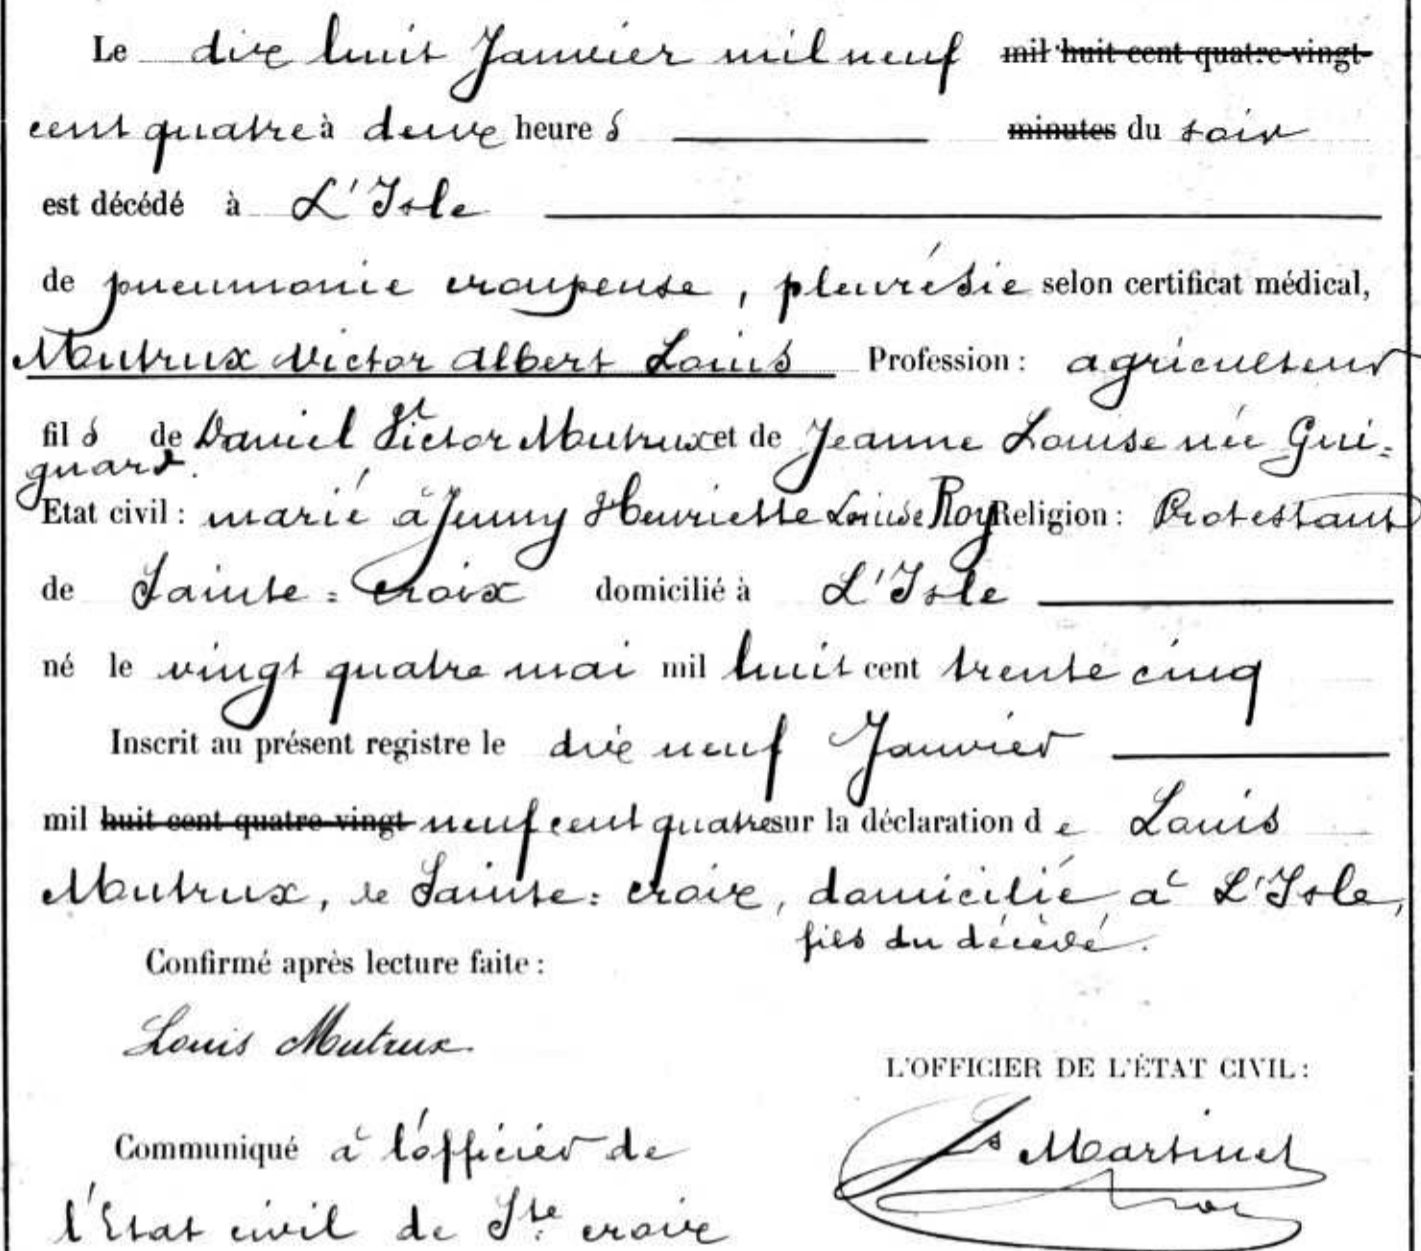 Le dix huit Janvier mil neuf mil huit cent quatre-vingt
cent quatre à deux heures minutes du soir
est décédé à L'Isle
de pneumonie croupeuse, pleurésie selon certificat médical,
Mutrux Victor Albert Louis Profession : agriculteur
fils de Daniel Victor Mutrux et de Jeanne Louise née Gui=
gnard.
Etat civil : marié à Jenny Henriette Louise Roy Religion : Protestant
de Sainte=Croix domicilié à L'Isle
né le vingt quatre mai mil huit cent trente cinq
Inscrit au présent registre le dix neuf Janvier
mil huit cent quatre-vingt neuf cent quatre sur la déclaration de Louis
Mutrux, de Sainte=Croix, domicilié à L'Isle,
fils du décédé.
Confirmé après lecture faite :
Louis Mutrux.
L'OFFICIER DE L'ÉTAT CIVIL :
Martinet
Communiqué à l'officier de
l'Etat civil de Ste croix